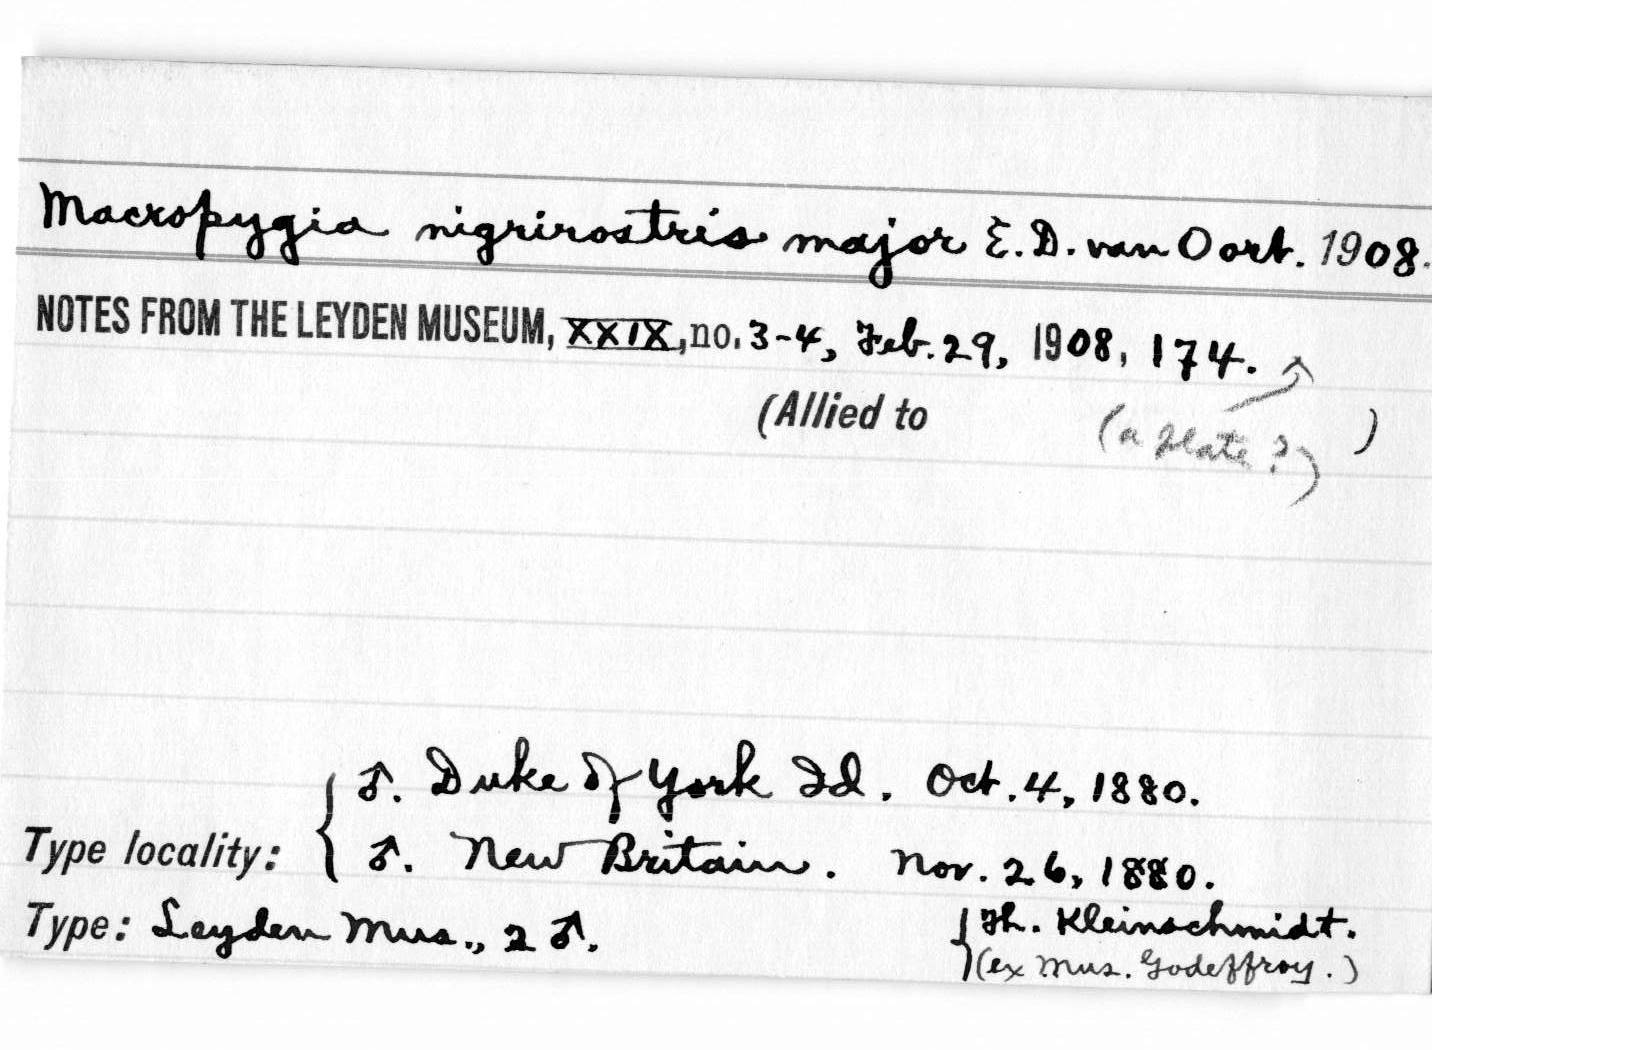 Macropygia nigrirostris major E. D. van Oort. 1908.
NOTES FROM THE LEYDEN MUSEUM, XXIX, no. 3-4, Feb. 29, 1908, 174.
(Allied to )
(a plate?)
♂. Duke of York Id. Oct. 4, 1880.
Type locality: { ♂. New Britain. Nov. 26, 1880.
Type: Leyden Mus., 2 ♂. { Th. Kleinschmidt.
(ex Mus. Godeffroy.)